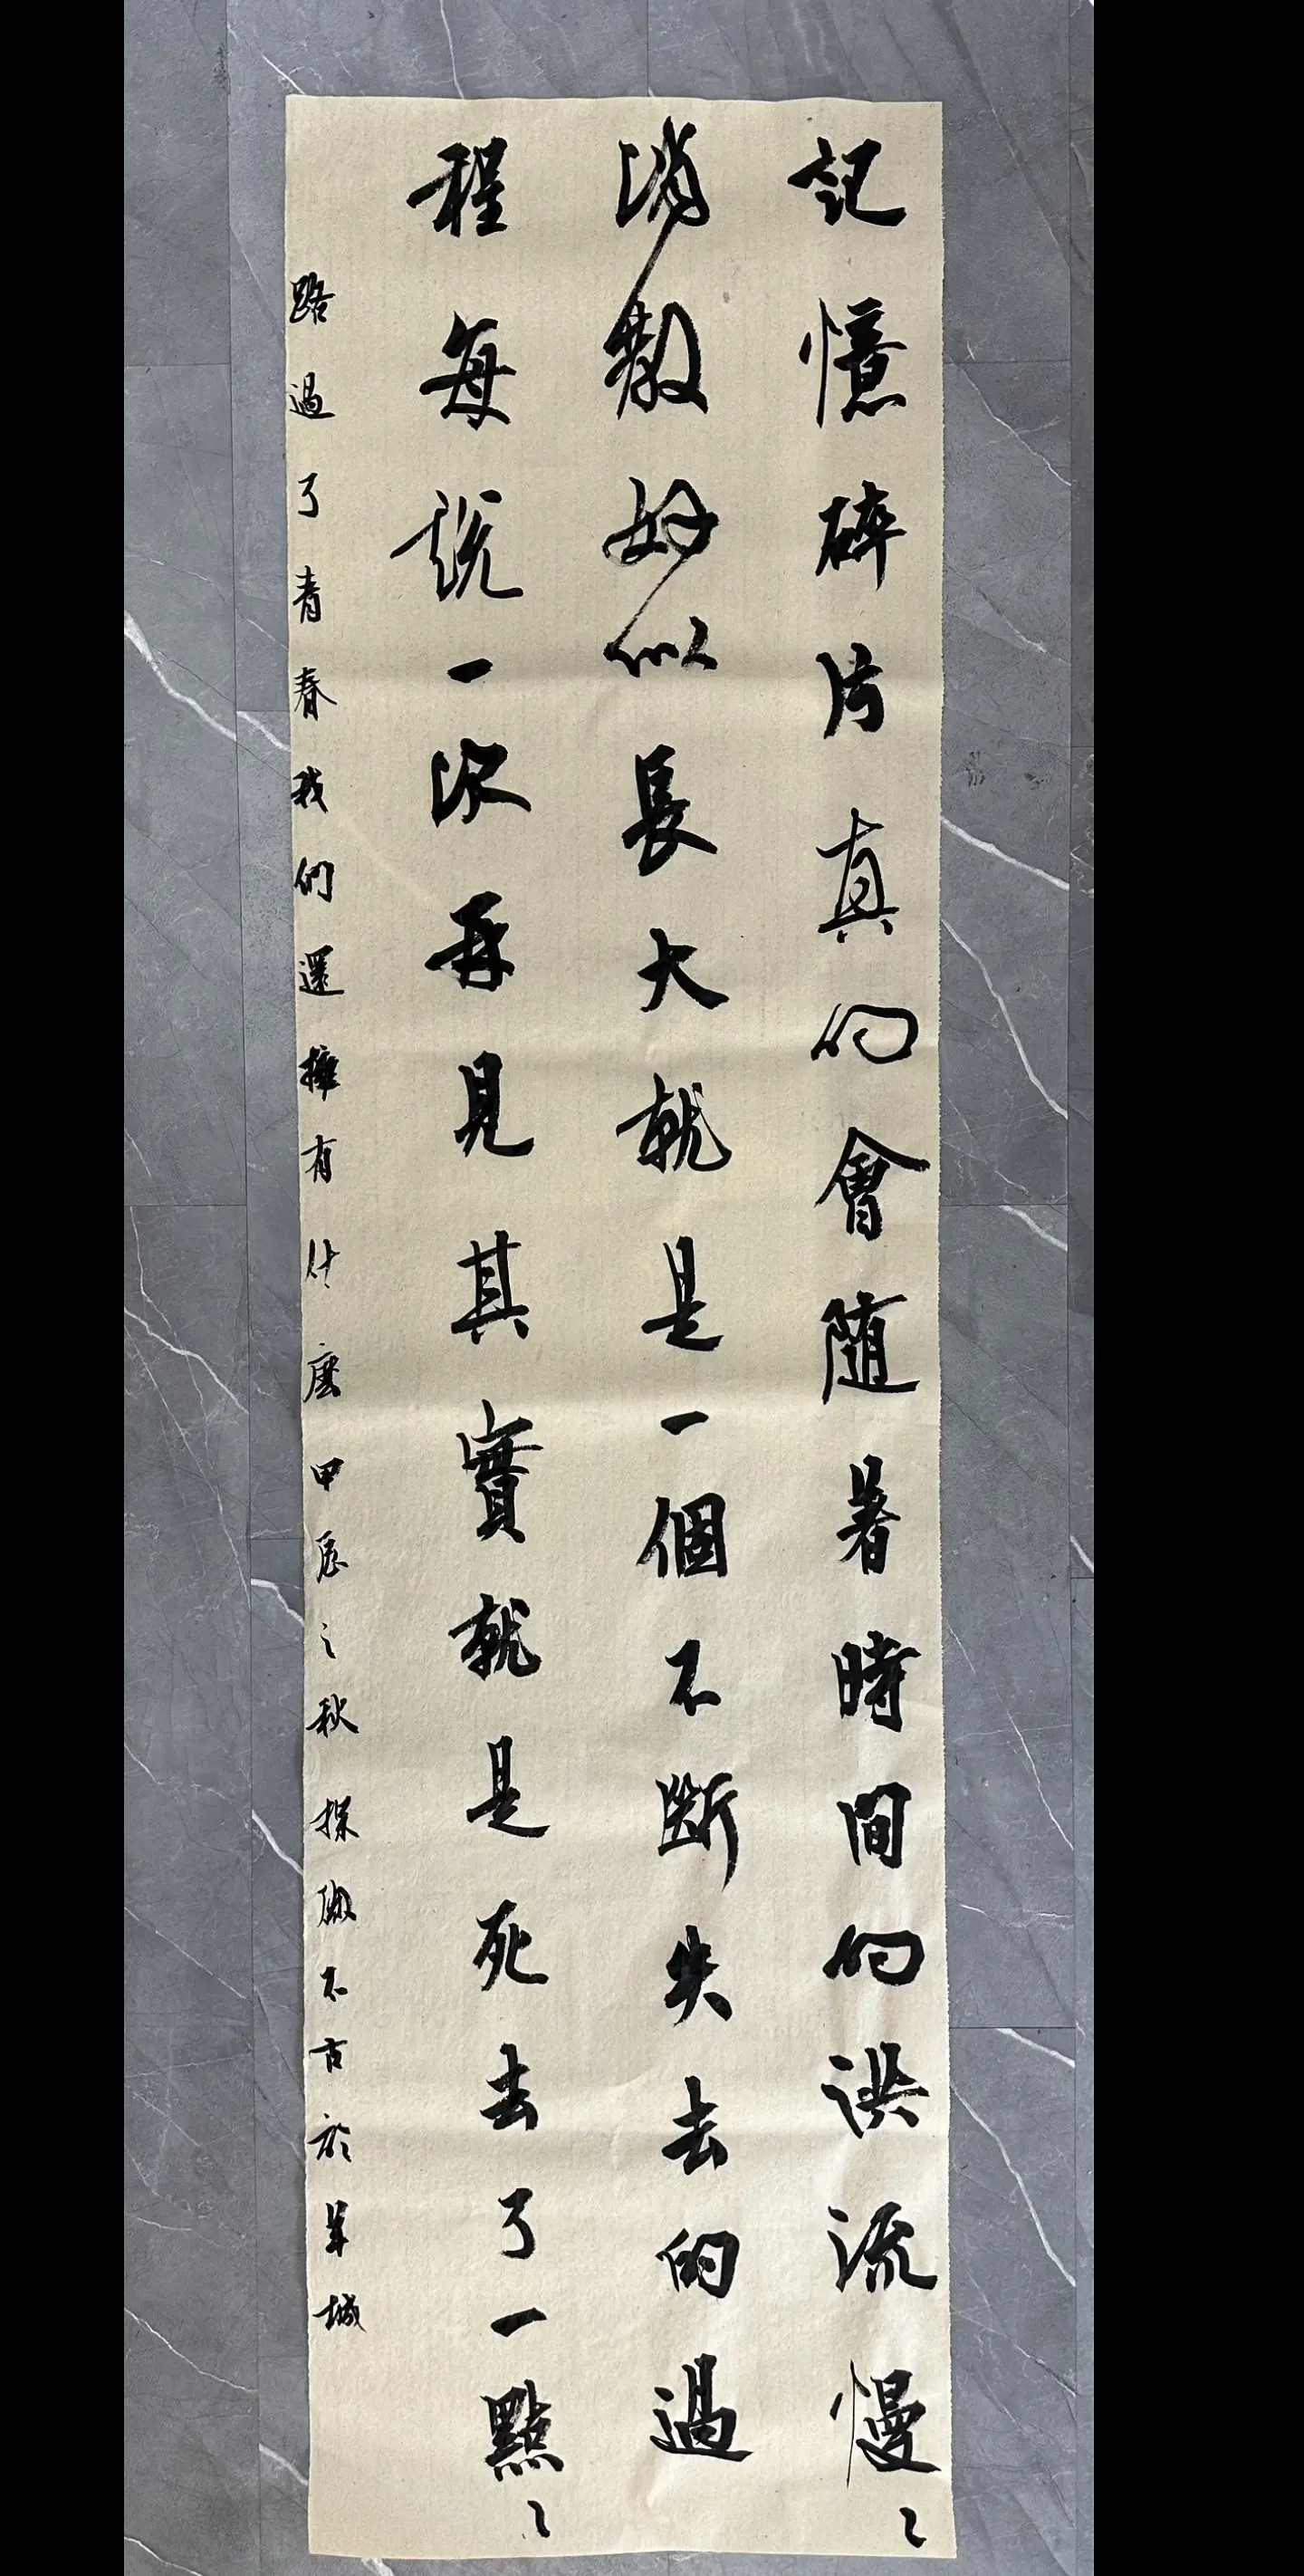 記憶碎片真的會随着時間的洪流慢々
消散好似長大就是一個不斷失去的過
程每説一次再見其實就是死去了一點々
路過了青春我們還擁有什麽甲辰之秋探微不古於羊城